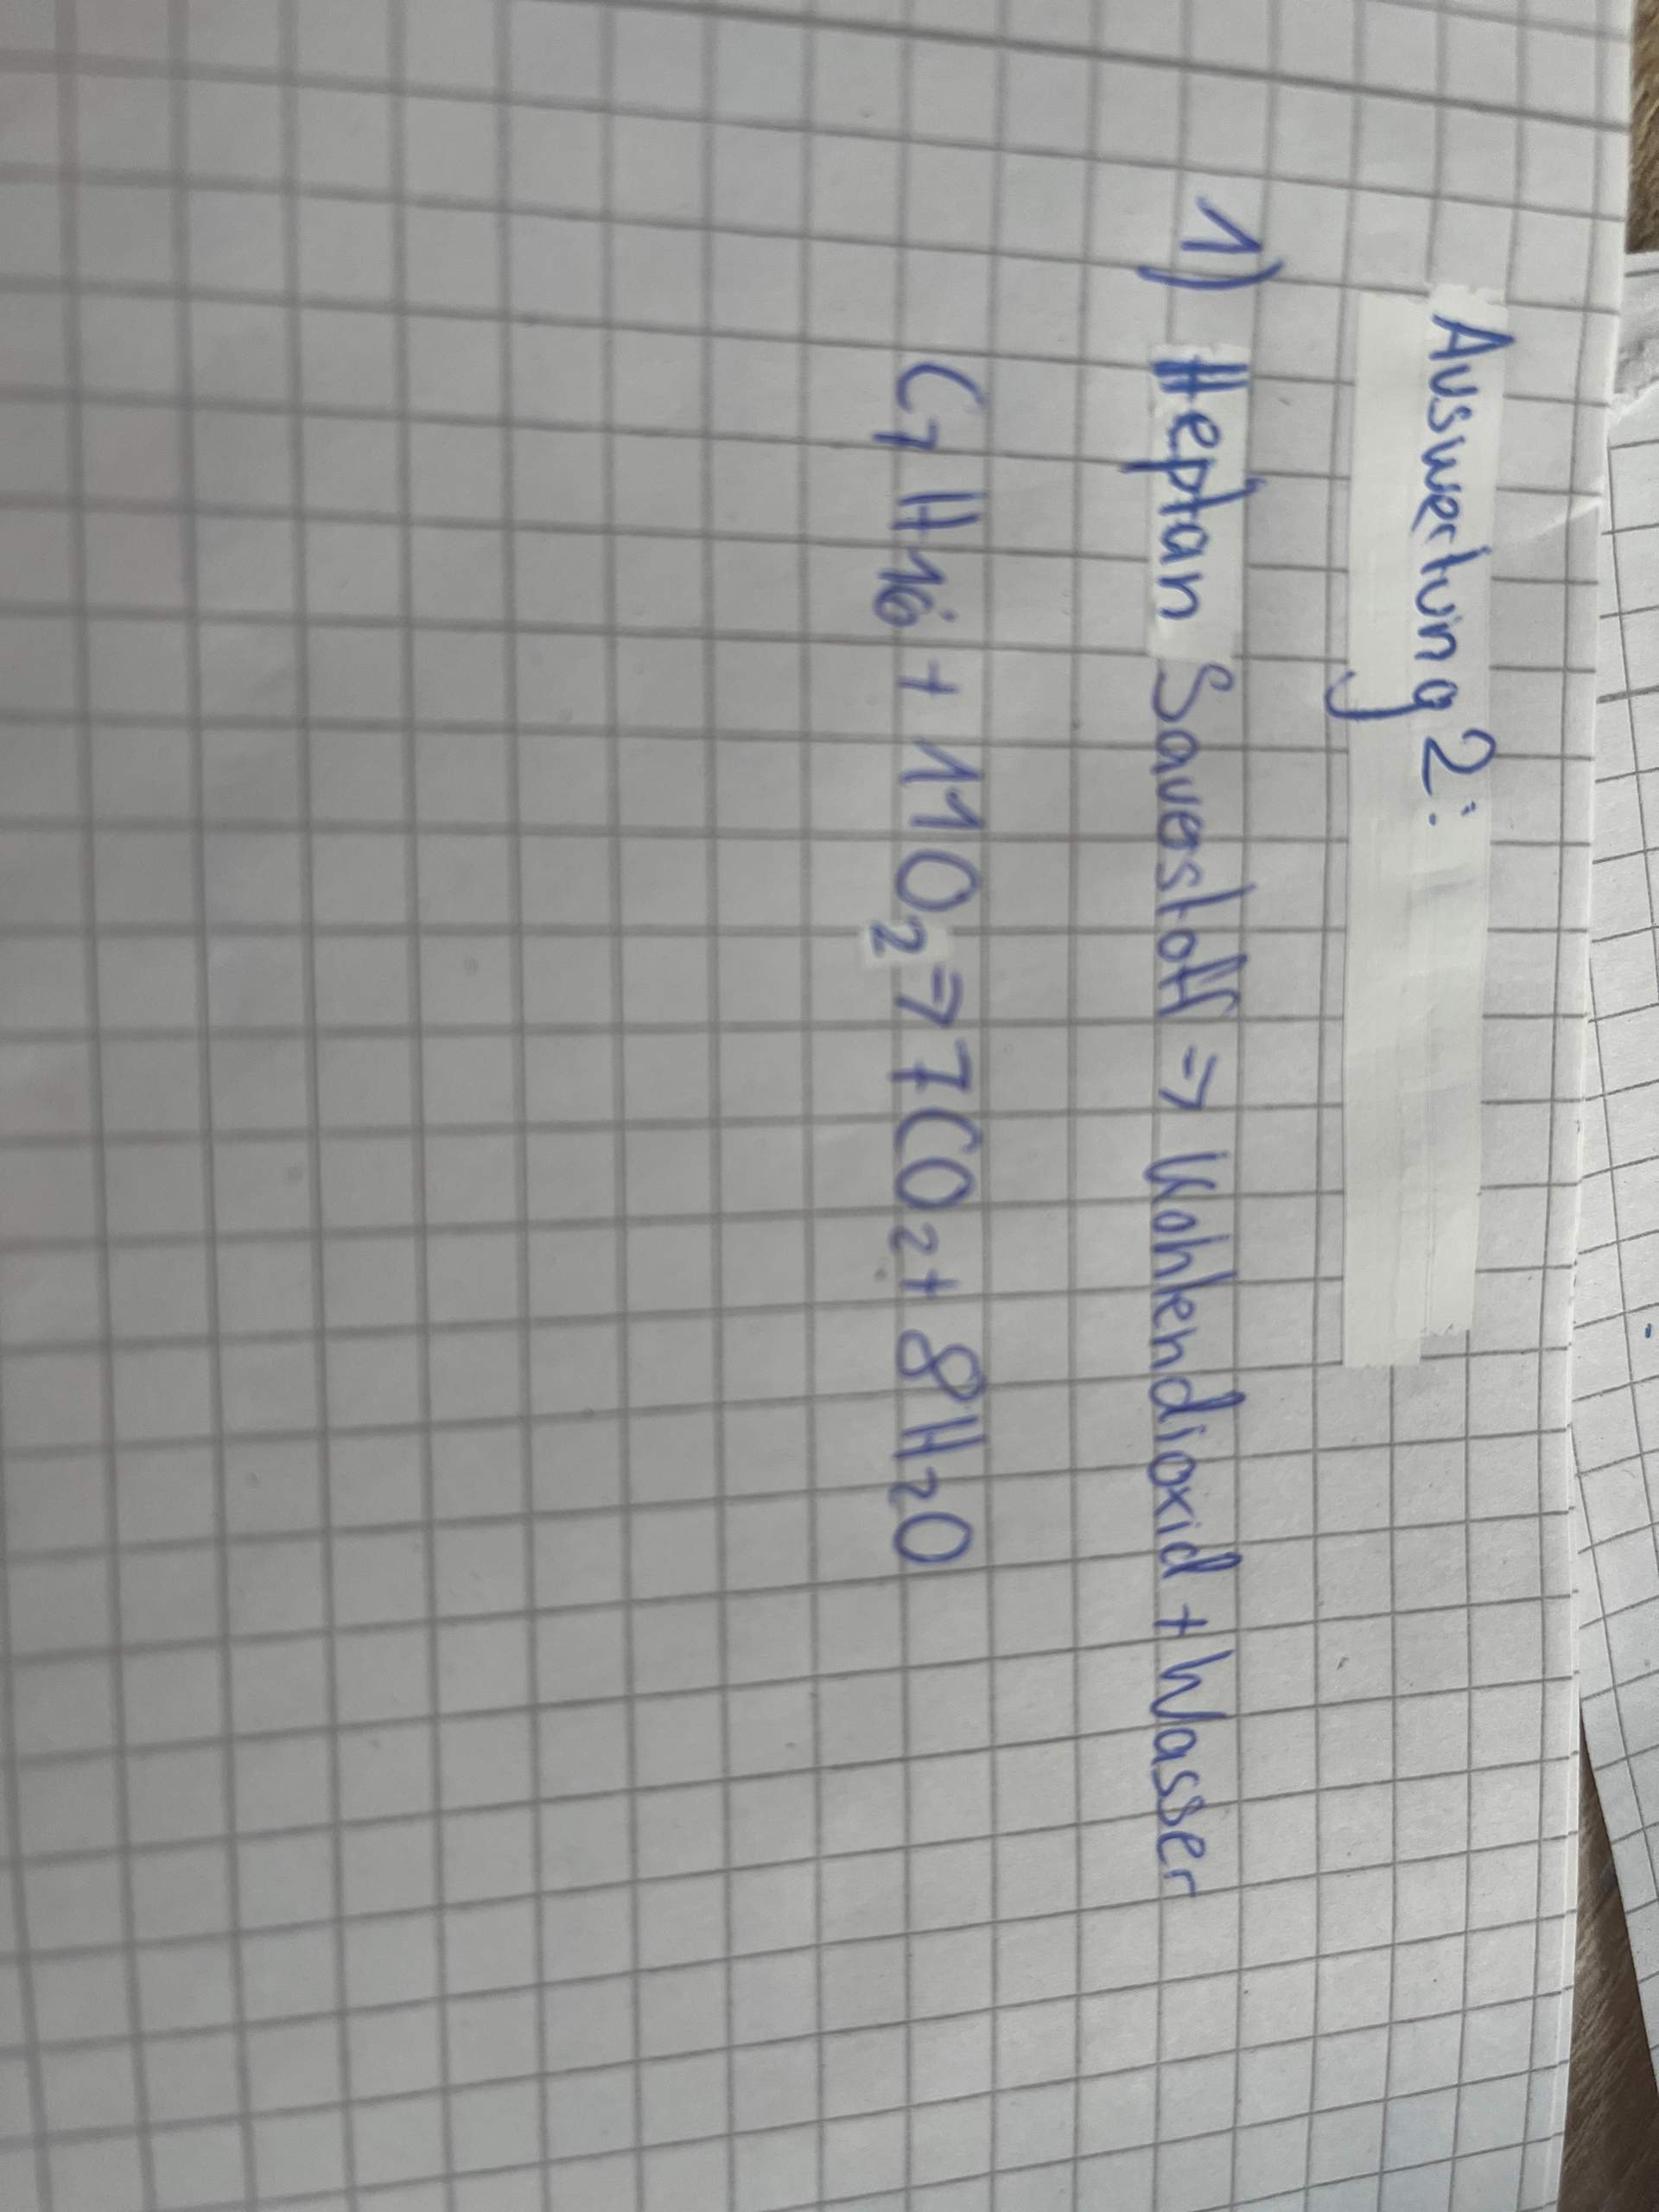 Auswertung 2:
1) Heptan Sauerstoff => Kohlendioxid + Wasser
C₇H₁₆ + 11O₂ => 7CO₂ + 8H₂O